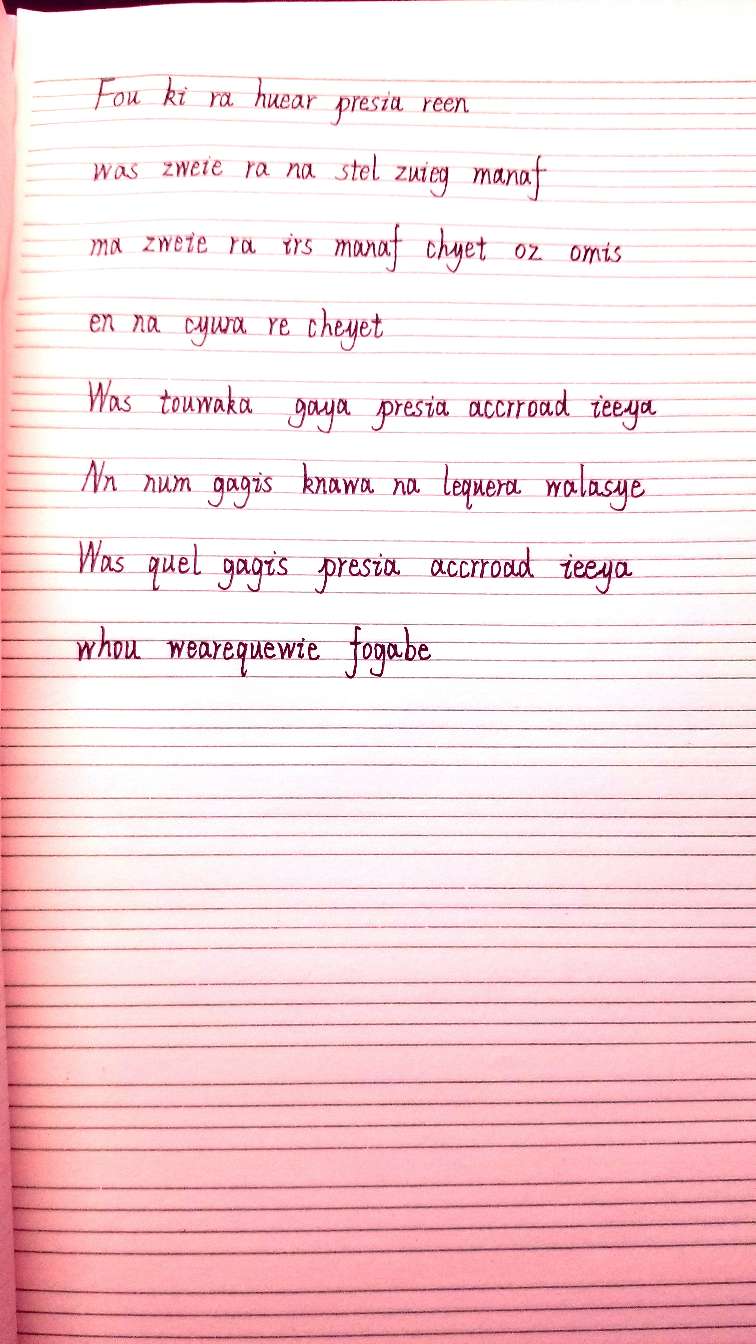 Fou ki ra huear presia reen
was zweie ra na stel zuieg manaf
ma zweie ra irs manaf chyet oz omis
en na cywa re cheyet
Was touwaka gaya presia accrroad ieeya
Nn num gagis knawa na lequera walasye
Was quel gagis presia accrroad ieeya
whou wearequewie fogabe